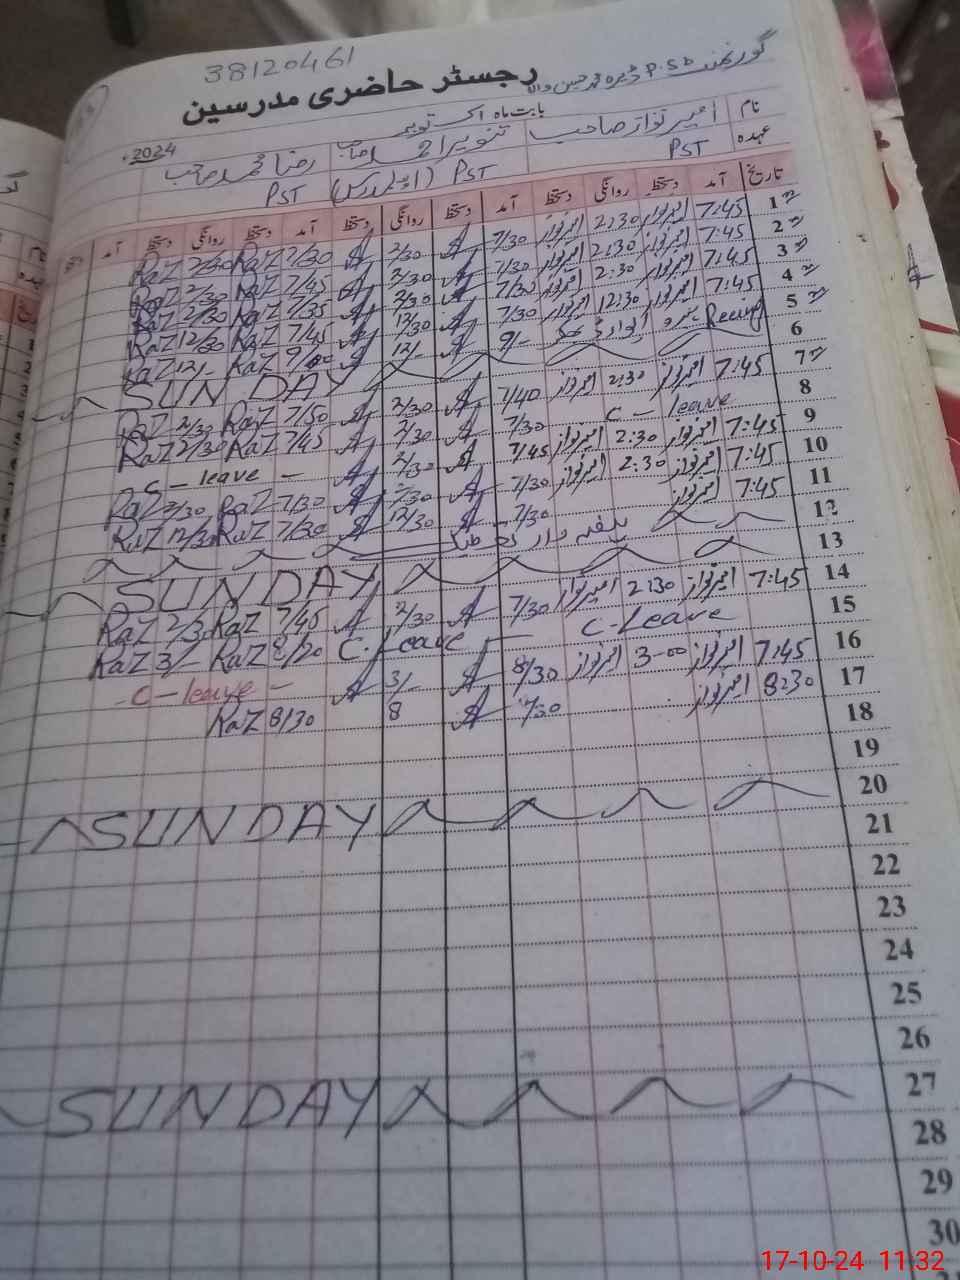 38120461
رجسٹر حاضری مدرسین
گورنمنٹ P.S ڈیرہ محمد حسین والا
بابت ماہ اکتوبر 2024
نام امیر نواز صاحب تنویر احمد صاحب رضا محمد صاحب
عہدہ PST PST PST
تاریخ آمد دستخط روانگی دستخط آمد دستخط روانگی دستخط آمد دستخط روانگی دستخط آمد دستخط
1 7:45 امیرنواز 2:30 امیرنواز 7/30 2/30 7/30 RaZ 2/30 RaZ
2 7:45 امیرنواز 2:30 امیرنواز 7/30 2/30 7/45 RaZ 2/30 RaZ
3 7:45 امیرنواز 2:30 امیرنواز 7/30 2/30 7/35 RaZ 2/30 RaZ
4 7:45 امیرنواز 12:30 امیرنواز 7/30 12/30 7/45 RaZ 12/30 RaZ
5 9/- 12/- RaZ 12/- RaZ
6 SUNDAY
7 7:45 امیرنواز 2:30 امیرنواز 7/40 2/30 7/50 RaZ 2/30 RaZ
8 C-leave 7/30 2/30 7/45 RaZ 2/30 RaZ
9 7:45 امیرنواز 2:30 امیرنواز 7/45 2/30 C-leave -
10 7:45 امیرنواز 2:30 امیرنواز 7/30 2/30 7/30 RaZ 2/30 RaZ
11 7:45 امیرنواز 7/30 12/30 7/30 RaZ 12/30 RaZ
12
13 SUNDAY
14 7:45 امیرنواز 2:30 امیرنواز 7/30 2/30 7/45 RaZ 2/30 RaZ
15 C-Leave C.Leave 8/20 RaZ 3/- RaZ
16 7:45 امیرنواز 3-00 امیرنواز 8/30 3/- - C-leave -
17 8:30 امیرنواز 8 8/30 RaZ
18
19
20 SUNDAY
21
22
23
24
25
26
27 SUNDAY
28
29
30
17-10-24 11:32